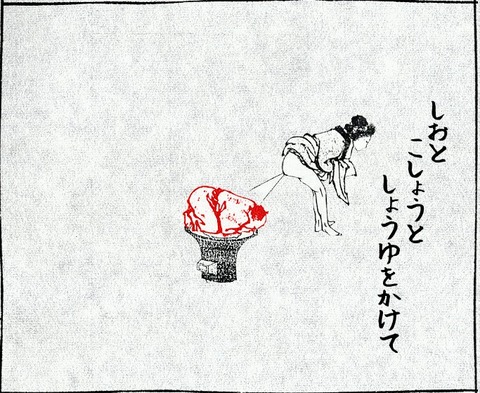 しおと
こしょうと
しょうゆをかけて